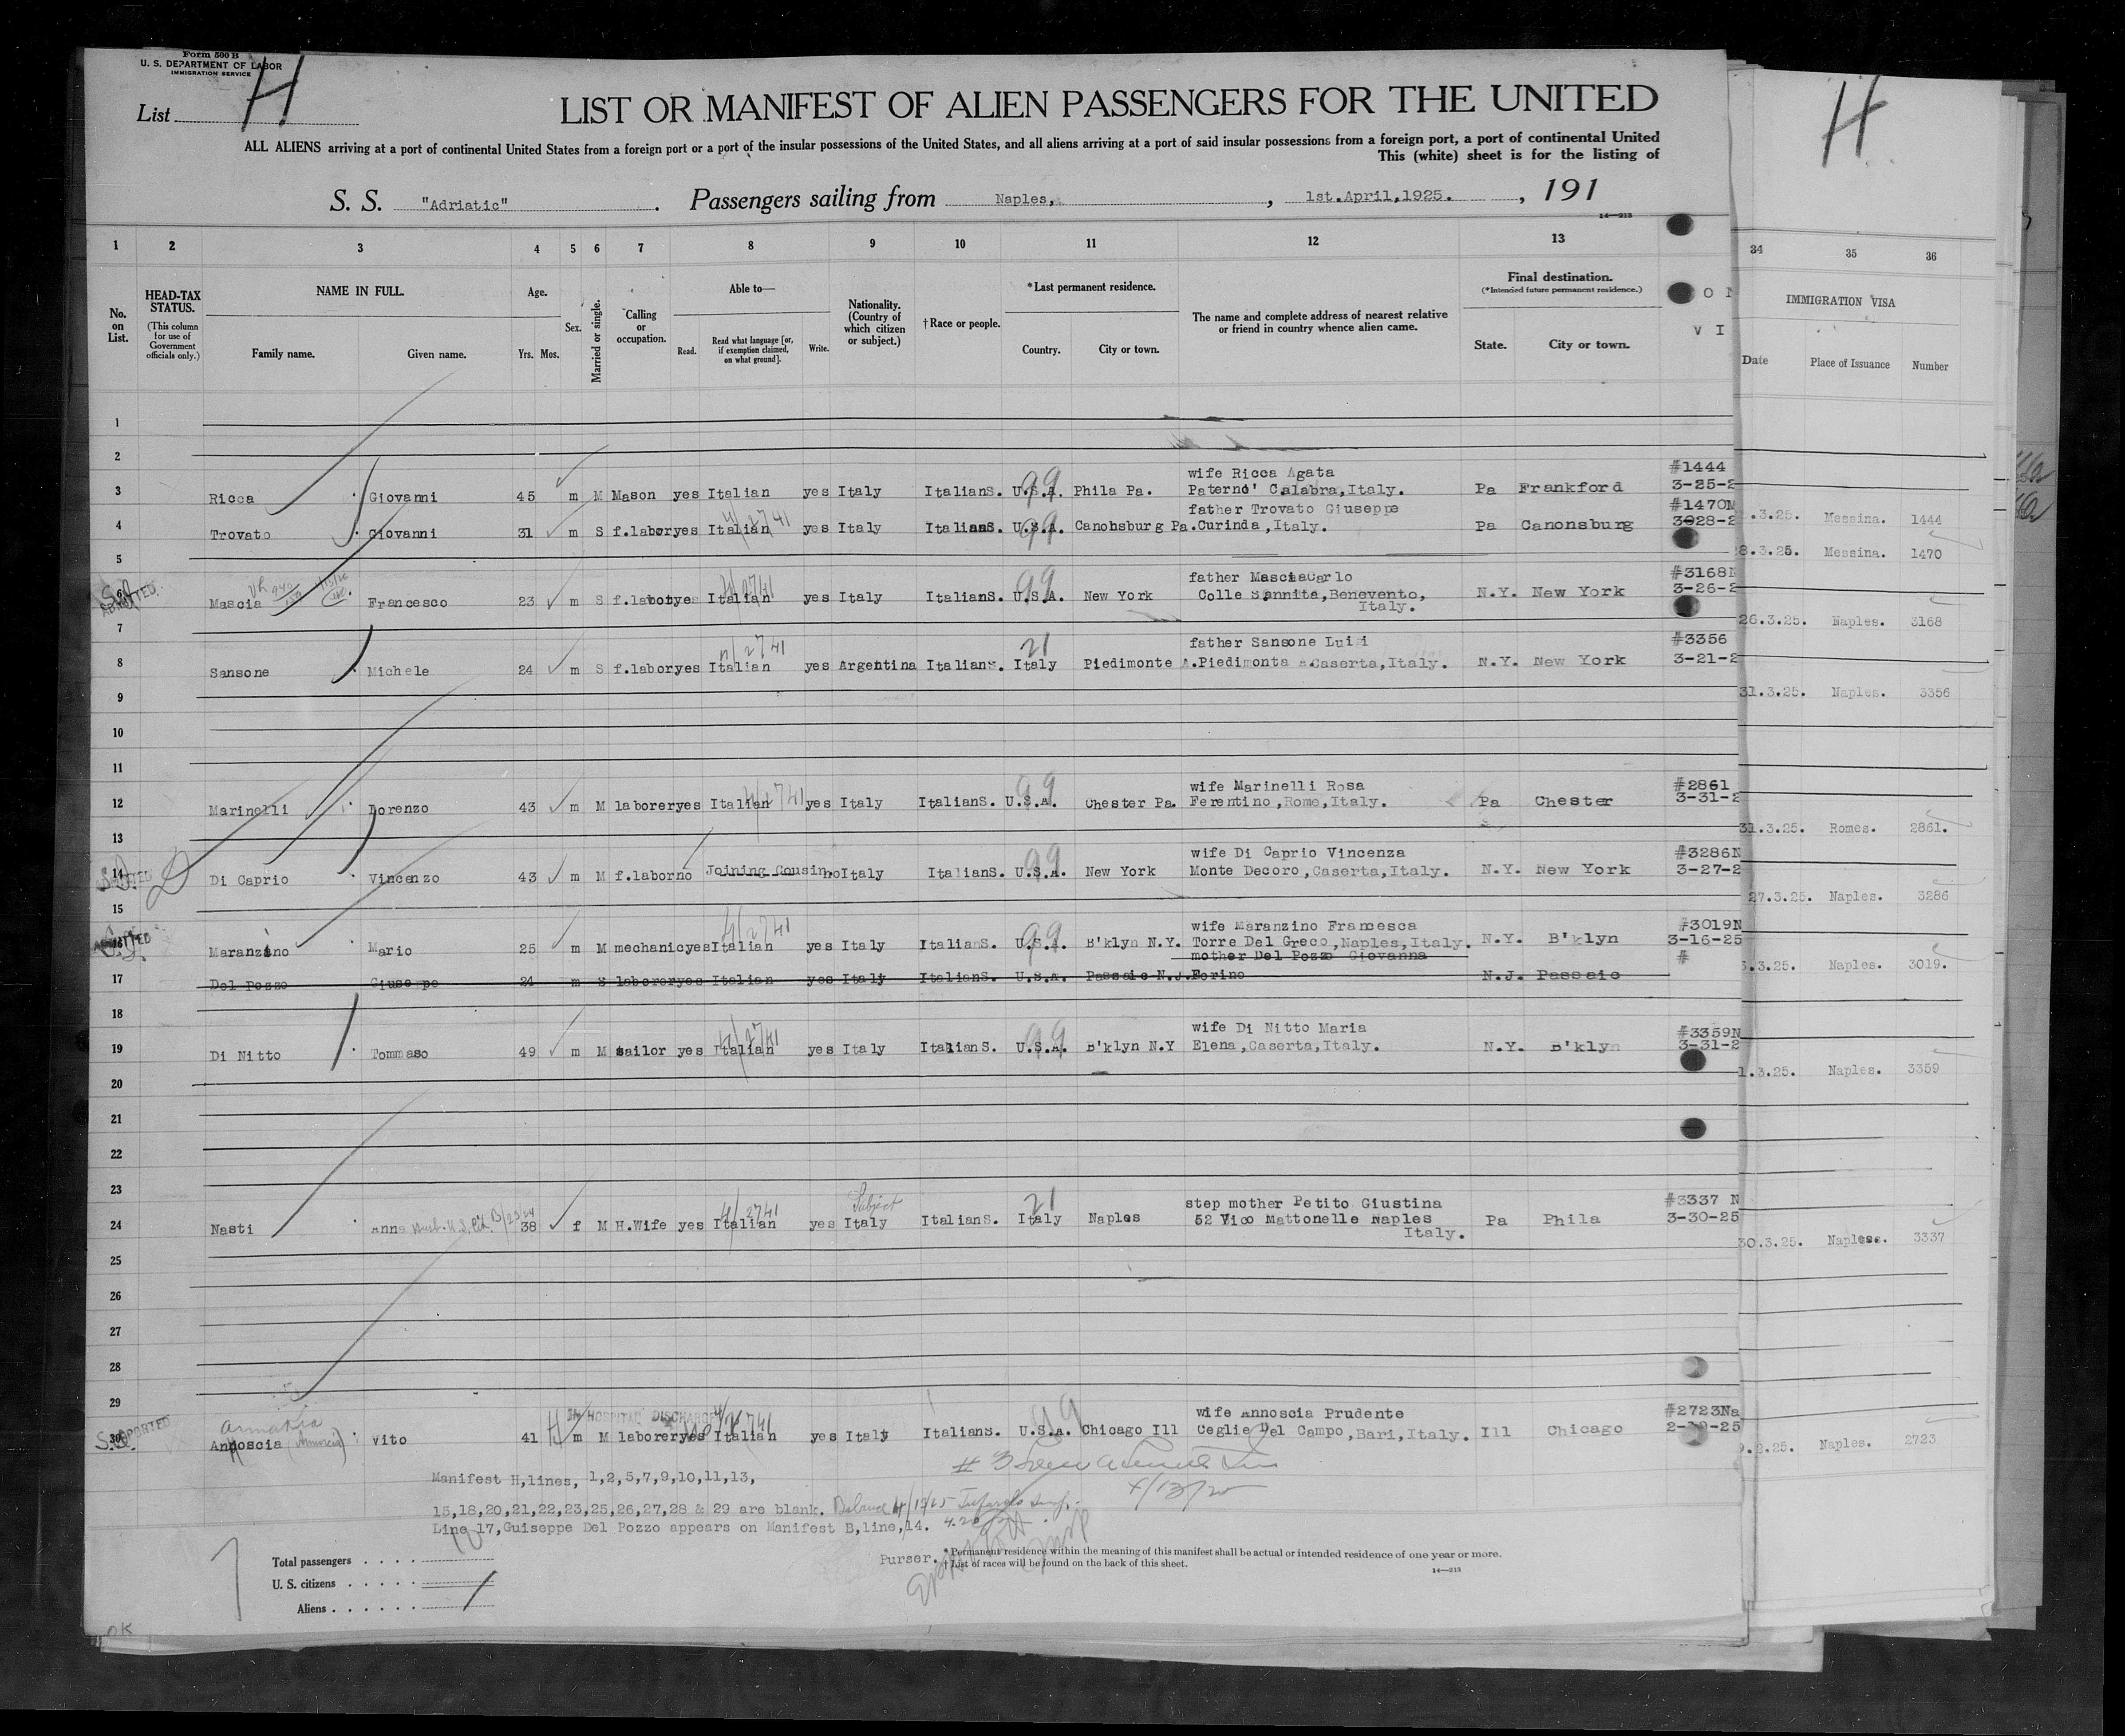 Form 500 B
U. S. DEPARTMENT OF LABOR
IMMIGRATION SERVICE
List H
LIST OR MANIFEST OF ALIEN PASSENGERS FOR THE UNITED
ALL ALIENS arriving at a port of continental United States from a foreign port or a port of the insular possessions of the United States, and all aliens arriving at a port of said insular possessions from a foreign port, a port of continental United
This (white) sheet is for the listing of
S. S. "Adriatic" . Passengers sailing from Naples, , 1st.April,1925. , 191
14—213
H
1 2 3 4 5 6 7 8 9 10 11 12 13
34 35 36
No. on List.
HEAD-TAX STATUS.
(This column for use of Government officials only.)
NAME IN FULL.
Family name. Given name.
Age.
Yrs. Mos.
Sex.
Married or single.
Calling or occupation.
Able to—
Read. Read what language [or, if exemption claimed, on what ground]. Write.
Nationality. (Country of which citizen or subject.)
†Race or people.
*Last permanent residence.
Country. City or town.
The name and complete address of nearest relative or friend in country whence alien came.
Final destination.
(*Intended future permanent residence.)
State. City or town.
IMMIGRATION VISA
Date Place of Issuance Number
1
2
wife Ricca Agata #1444
3 Ricca Giovanni 45 m M Mason yes Italian yes Italy ItalianS. U.S.A. 99 Phila Pa. Paterno' Calabra,Italy. Pa Frankford 3-25-2
.3.25. Messina. 1444
father Trovato Giuseppe #1470N
4 Trovato Giovanni 31 m S f.labor yes Italian yes Italy ItalianS. U.S.A. 99 Canonsburg Pa. Curinda,Italy. Pa Canonsburg 3-28-2
8.3.25. Messina. 1470
5
father Mascia Carlo #3168N
6 ADMITTED Mascia Francesco 23 m S f.labor yes Italian yes Italy ItalianS. U.S.A. 99 New York Colle Sannita,Benevento, N.Y. New York 3-26-2
Italy.
26.3.25. Naples. 3168
7
father Sansone Luigi #3356
8 Sansone Michele 24 m S f.labor yes Italian yes Argentina ItalianS. Italy 21 Piedimonte A. Piedimonta A.Caserta,Italy. N.Y. New York 3-21-2
31.3.25. Naples. 3356
9
10
11
wife Marinelli Rosa #2861
12 Marinelli Lorenzo 43 m M laborer yes Italian yes Italy ItalianS. U.S.A. 99 Chester Pa. Ferentino,Rome,Italy. Pa Chester 3-31-2
31.3.25. Romes. 2861.
13
wife Di Caprio Vincenza #3286N
14 Di Caprio Vincenzo 43 m M f.labor no Joining Cousin. no Italy ItalianS. U.S.A. 99 New York Monte Decoro,Caserta,Italy. N.Y. New York 3-27-2
27.3.25. Naples. 3286
15
wife Maranzino Francesca #3019N
16 Maranzino Mario 25 m M mechanic yes Italian yes Italy ItalianS. U.S.A. 99 B'klyn N.Y. Torre Del Greco,Naples,Italy. N.Y. B'klyn 3-16-25
.3.25. Naples. 3019.
mother Del Pozzo Giovanna #
17 Del Pozzo Giuseppe 24 m S laborer yes Italian yes Italy ItalianS. U.S.A. Passaic N.J. Forino N.J. Passaic
18
wife Di Nitto Maria #3359N
19 Di Nitto Tommaso 49 m M tailor yes Italian yes Italy ItalianS. U.S.A. 99 B'klyn N.Y Elena,Caserta,Italy. N.Y. B'klyn 3-31-2
1.3.25. Naples. 3359
20
21
22
23
step mother Petito Giustina #3337 N
24 Nasti Anna 38 f M H.Wife yes Italian yes Subject Italy ItalianS. Italy 21 Naples 52 Vico Mattonelle Naples Pa Phila 3-30-25
Italy.
30.3.25. Naples. 3337
25
26
27
28
29
IN HOSPITAL DISCHARGED
wife Annoscia Prudente #2723Na
30 Annoscia Vito 41 m M laborer yes Italian yes Italy ItalianS. U.S.A. 99 Chicago Ill Ceglie Del Campo,Bari,Italy. Ill Chicago
.2.25. Naples. 2723
Manifest H,lines, 1,2,5,7,9,10,11,13,
15,18,20,21,22,23,25,26,27,28 & 29 are blank.
Line 17,Guiseppe Del Pozzo appears on Manifest B,line,14.
Purser.
Total passengers
U. S. citizens
Aliens
* Permanent residence within the meaning of this manifest shall be actual or intended residence of one year or more.
† List of races will be found on the back of this sheet.
14—213
OK